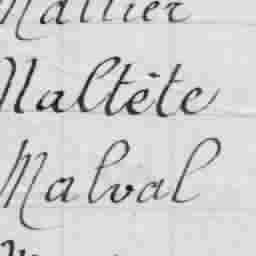 Mallier
Maltête
Malval